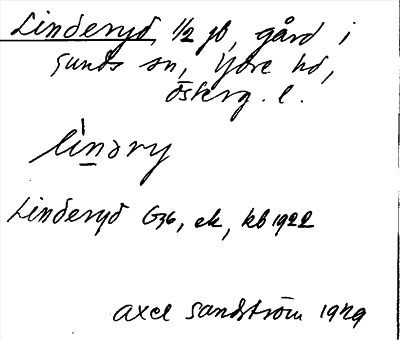 Linderyd, 1/2 jb, gård i
Sunds sn, Ydre hd,
Österg. l.
li̱nəry
Linderyd G36, ek, kb 1922
Axel Sandström 1929